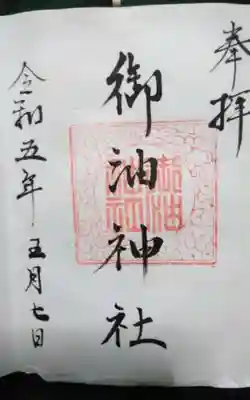 奉拝
御油神社
令和五年五月七日